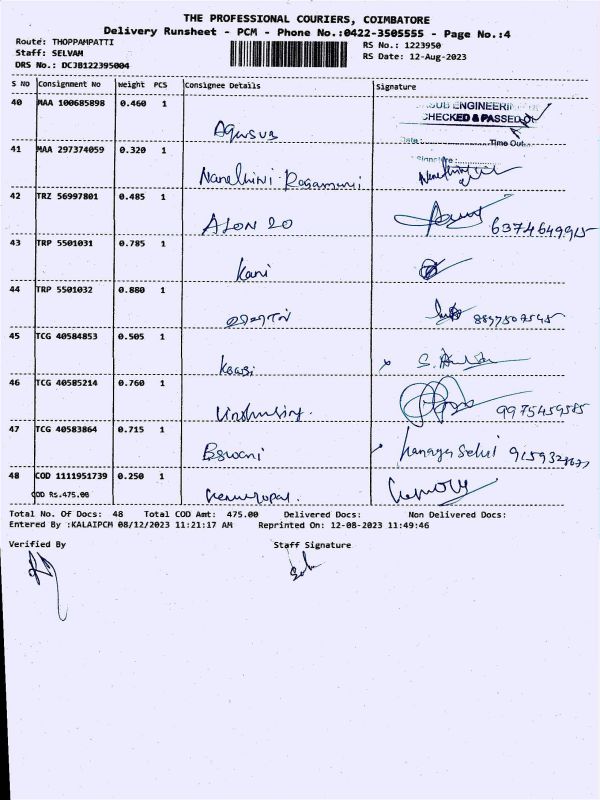 THE PROFESSIONAL COURIERS, COIMBATORE
Delivery Runsheet - PCM - Phone No.:0422-3505555 - Page No.:4
Route: THOPPAMPATTI
RS No.: 1223950
Staff: SELVAM
RS Date: 12-Aug-2023
DRS No.: DCJB122395004
S NO Consignment No Weight PCS Consignee Details Signature
40 MAA 100685898 0.460 1
SUB ENGINEERI
CHECKED & PASSED
Agusub
Date: Time Out
41 MAA 297374059 0.320 1
Signature:
Nandhini
42 TRZ 56997801 0.485 1
ALON 20
6374649915
43 TRP 5501031 0.785 1
Kani
44 TRP 5501032 0.880 1
8897507545
45 TCG 40584853 0.505 1
S.
46 TCG 40585214 0.760 1
9975459585
47 TCG 40583864 0.715 1
Eswani
Selvi
48 COD 1111951739 0.250 1
COD Rs.475.00
Venugopal.
Total No. Of Docs: 48 Total COD Amt: 475.00 Delivered Docs: Non Delivered Docs:
Entered By :KALAIPCM 08/12/2023 11:21:17 AM Reprinted On: 12-08-2023 11:49:46
Verified By Staff Signature